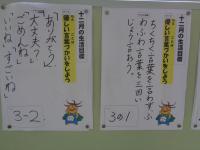 十二月の生活目標
優しい言葉づかいをしよう
ちくちく言葉を言わずふ
わふわ言葉を三回い
じょう言おう。
3の1
十二月の生活目標
優しい言葉づかいをしよう
「ありがとう」
「大丈夫?」
「ごめんね」
「いいね、すごいね」
3-2